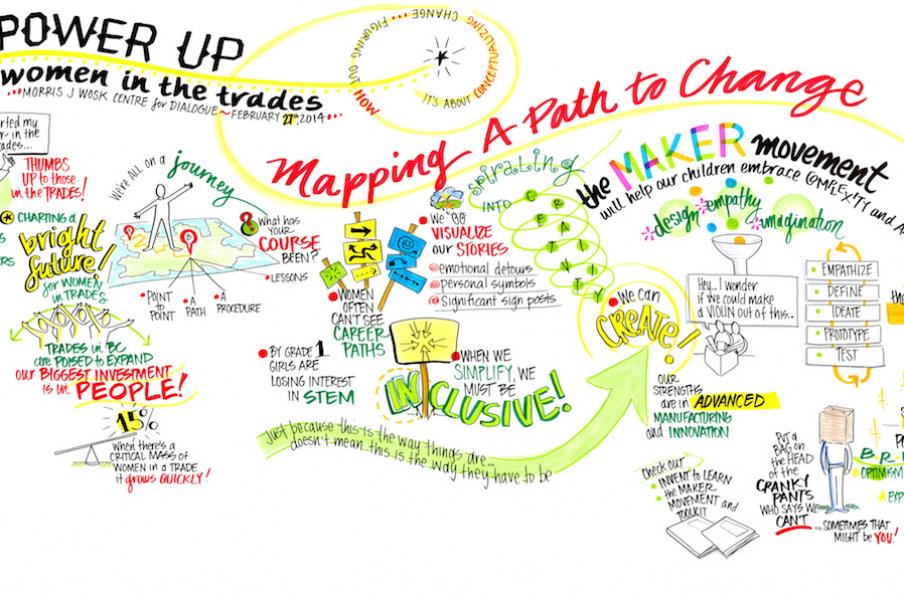 POWER UP
women in the trades
MORRIS J WOSK CENTRE for DIALOGUE ~ FEBRUARY 27th, 2014
CHANGE ... FIGURING OUT
NOW
IT'S ABOUT CONCEPTUALIZING
Mapping A Path to Change
in the
THUMBS
UP to those
in the TRADES!
CHARTING a
bright
future!
for WOMEN
in TRADES
TRADES in BC
are POISED to EXPAND
our BIGGEST INVESTMENT
is in PEOPLE!
15%
WHEN THERE'S a
CRITICAL MASS OF
WOMEN IN a TRADE
it grows QUICKLY!
We're ALL on a
journey
2
POINT
to
POINT
A
PATH
A
PROCEDURE
What has
YOUR
COURSE
BEEN?
LESSONS
WOMEN
OFTEN
CAN'T SEE
CAREER
PATHS
BY GRADE 1
GIRLS ARE
LOSING INTEREST
in STEM
We
VISUALIZE
our STORIES
emotional detours
personal symbols
Significant sign posts
WHEN WE
SIMPLIFY, WE
MUST BE
INCLUSIVE!
Just because this is the way things are...
doesn't mean this is the way they have to be
spiraling
INTO
CREATIVITY
We can
CREATE!
OUR
STRENGTHS
are in ADVANCED
MANUFACTURING
and INNOVATION
the MAKER movement
will help our children embrace
design empathy
imagination
Hey... I wonder
if we could make
a VIOLIN out of this..
EMPATHIZE
DEFINE
IDEATE
PROTOTYPE
TEST
Check out
INVENT to LEARN
the MAKER
MOVEMENT and
TOOLKIT
PUT a
BAG on
the HEAD
of the
CRANKY
PANTS
WHO SAYS WE
CAN'T
... SOMETIMES THAT
MIGHT be YOU!
OPTIMISM